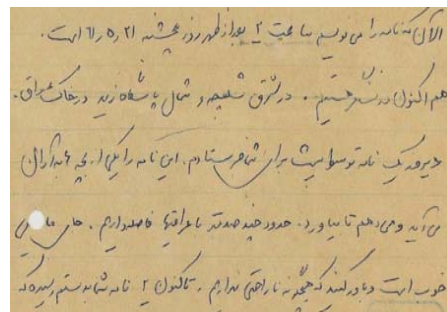 الآن که نامه را می نویسم ساعت ۲ بعدازظهر روز پنجشنبه ۶۱/۵/۲۱ است.
هم اکنون در سنگر هستیم. در شرق شلمچه و شمال پاسگاه زید در خاک عراق.
دیروز یک نامه توسط پست برای شما فرستادم. این نامه را یکی از بچه ها به
می آید و می دهم تا بیاورد. حدود چند صد متر با عراقیها فاصله داریم. حال ما
خوب است و باور کنید که هیچگونه ناراحتی نداریم. تاکنون ۲ نامه شما بدستم رسیده که